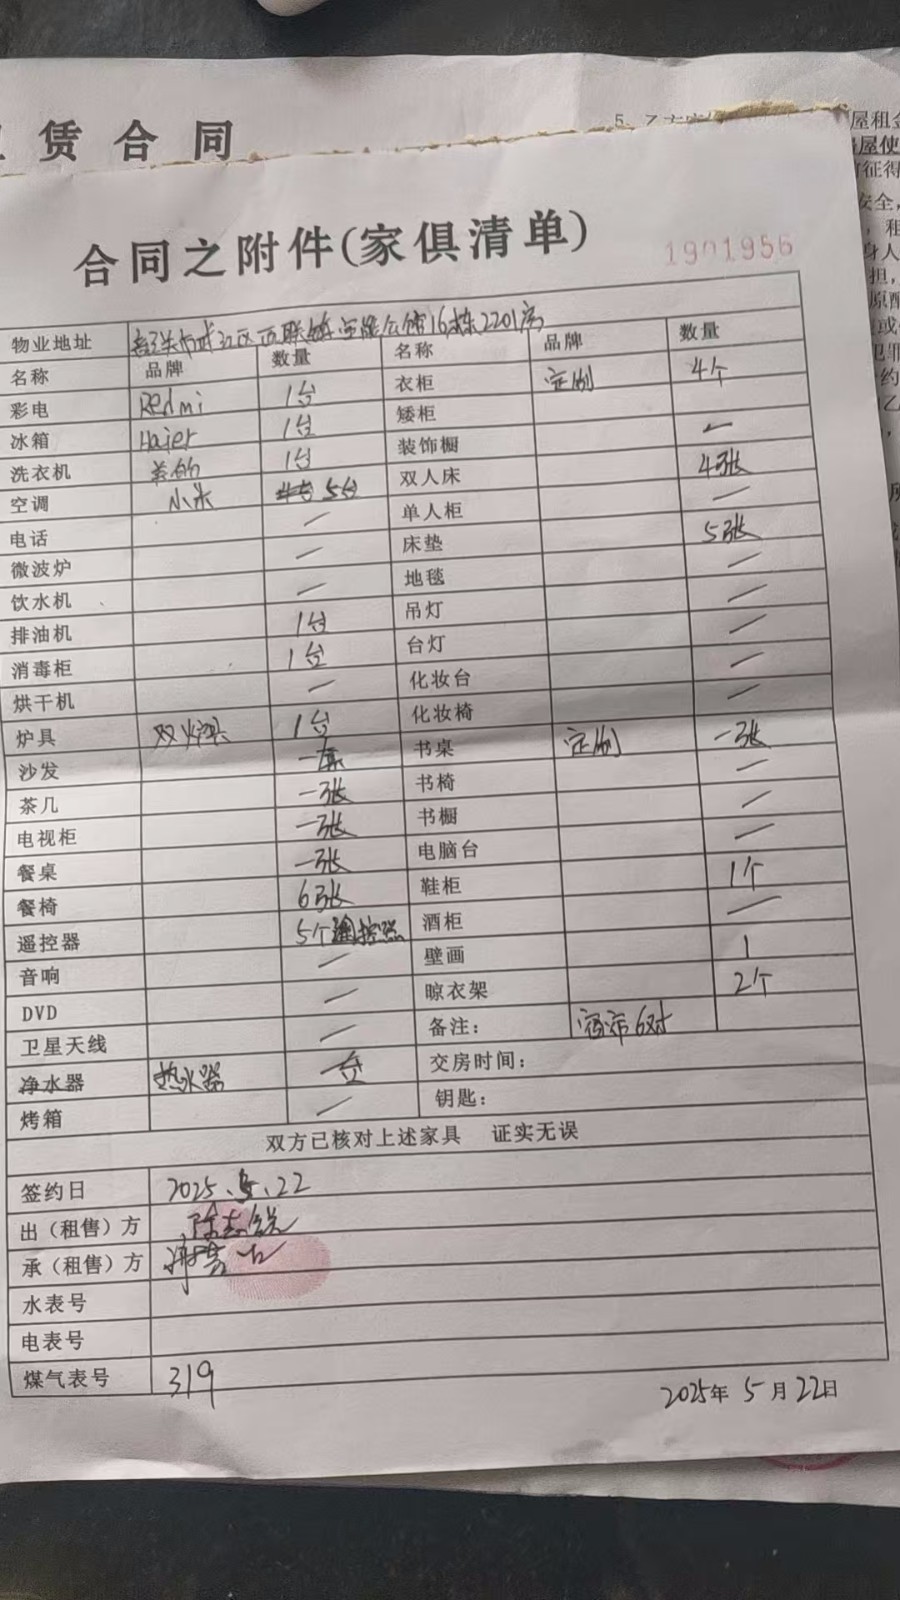 赁合同
5、乙方
屋租金
屋使
征得
安全，
，租
身人
担，
原酉
或
犯罪
约
乙
，
合同之附件(家俱清单)
1901956
物业地址 韶关市武江区西联镇 公馆16栋2201房
名称 品牌 数量 名称 品牌 数量
彩电 Redmi 1台 衣柜 定制 4个
冰箱 Haier 1台 矮柜
洗衣机 美的 1台 装饰橱 一
空调 小米 5台 双人床 4张
电话 / 单人柜 /
微波炉 / 床垫 5张
饮水机 / 地毯 /
排油机 1台 吊灯 /
消毒柜 1台 台灯 /
烘干机 / 化妆台 /
炉具 双炉头 1台 化妆椅 /
沙发 一套 书桌 定制 一张
茶几 一张 书椅 /
电视柜 一张 书橱 /
餐桌 一张 电脑台 /
餐椅 6张 鞋柜 1个
遥控器 5个遥控器 酒柜 /
音响 / 壁画 1
DVD / 晾衣架 2个
卫星天线 / 备注： 窗帘6对
净水器 热水器 一台 交房时间：
烤箱 / 钥匙：
双方已核对上述家具 证实无误
签约日 2025.5.22
出（租售）方 陈志锐
承（租售）方
水表号
电表号
煤气表号 319
2025年5月22日